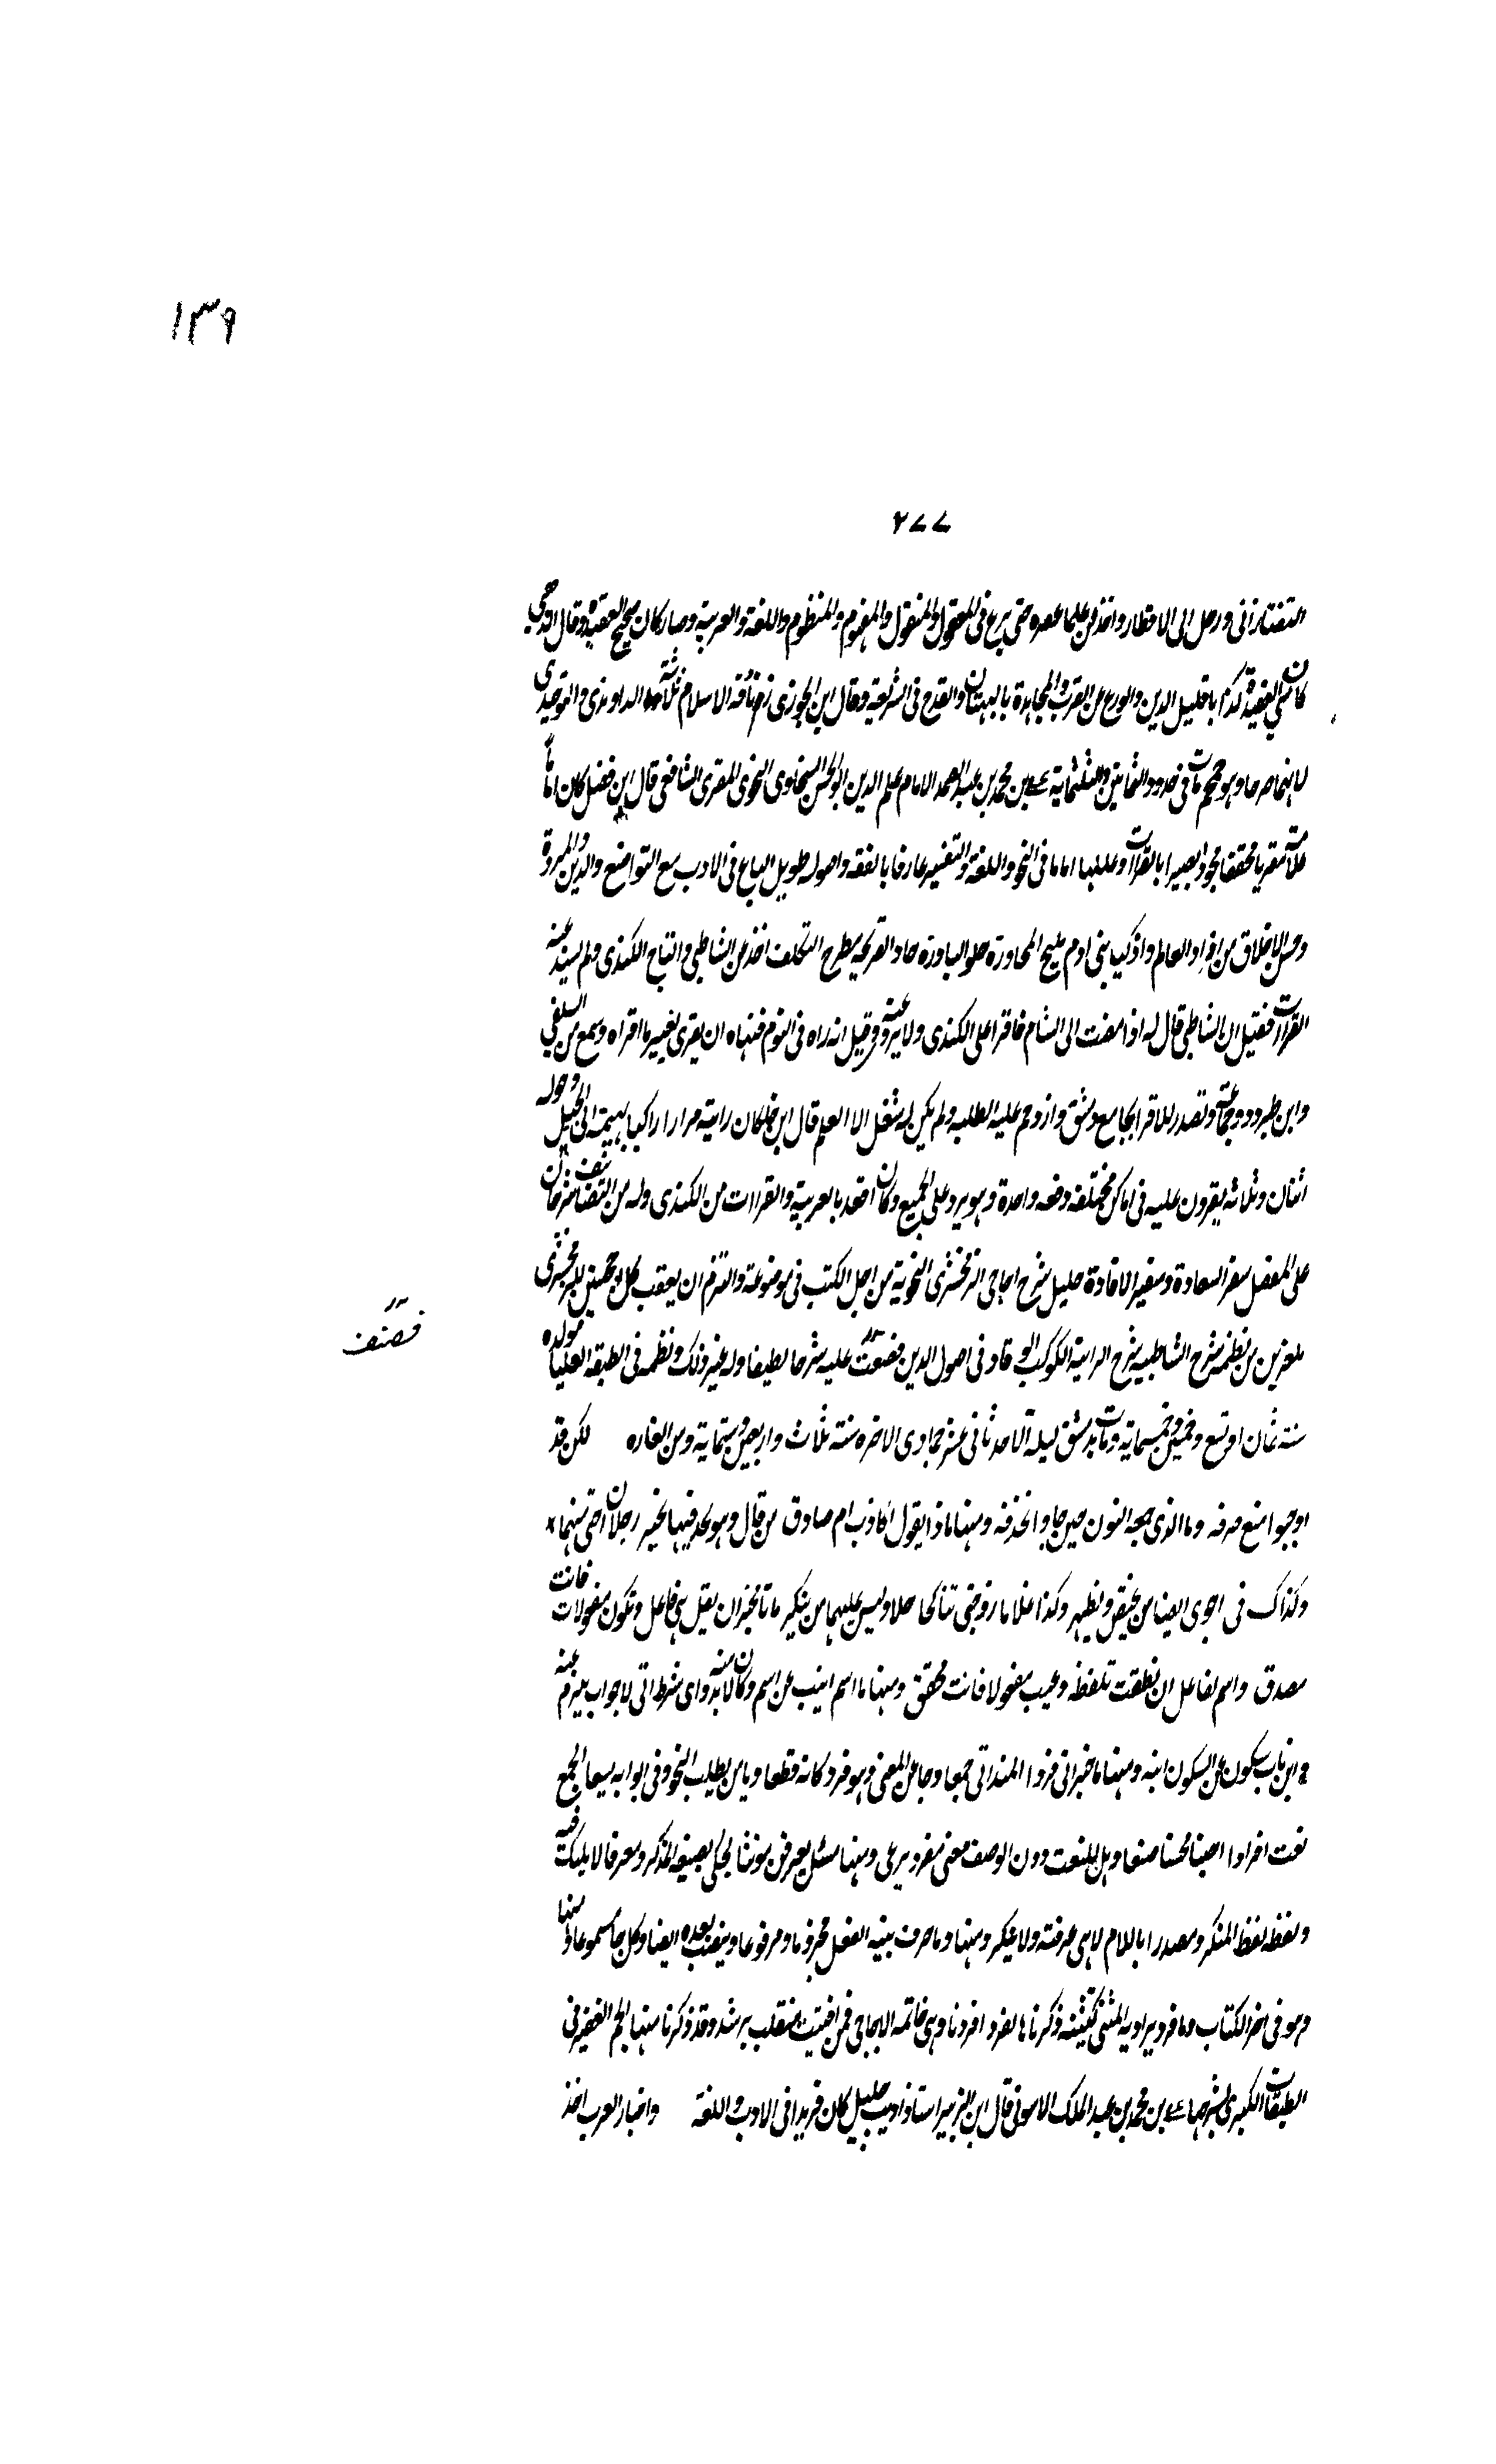 ١٣٩
٢٧٧
التفتازانى ورحل الى الاقطار واخذ عن علما عصره حتى برع فى المعقول والمنقول والمفهوم والمنظوم واللغة والعربية وصار كان صحيح العقيدة وقال الذهبي
كان سي العقيدة كذابا قليل الدين والورع عن القرب والمجاهدة بالبهتان والقدح فى الشريعة وقال ابن الجوزى زنادقه الاسلام ثلاثة الداوندى والتوحيدى
لانهما صرحا وهو مجمجم مات فى حدود الثمانين والثلثماية على بن محمد بن عبد الصمد الامام علم الدين ابو الحسن السخاوى النحوى المقرى الشافعى قال ابن فضل كان اماما
علامة مقريا محققا مجودا بصيرا بالقراات وعللها اماما فى النحو واللغة والتفسير عارفا بالفقه واصوله طويل الباع فى الادب مع التواضع والدين والمروة
وحسن الاخلاق من افراد العالم واذكيا بنى ادم مليح المحاورة حلو البادرة حاد القريحه مطرح التكلف اخذ عن الشاطبى والتاج الكندى ولم يسند عنه
القراات فقيل ان الشاطبى قال له اذا مضيت الى الشام فاقرا على الكندى ولا ترو عنه وقيل انه راه فى النوم فنهاه ان يقرى بغير ما اقراه وسمع من السلفي
وابن طبرزد وجماعة وتصدر للاقرا بجامع دمشق وازدحم عليه الطلبه ولم يكن له شغل الا العلم قال ابن خلكان رايته مرارا راكبا بهيمة الى الجبل وحوله
اثنان وثلاثه يقرون عليه فى اماكن مختلفه دفعه واحدة وهو يرد على الجميع وكان اقعد بالعربية والقراات من الكندى وله من التصانيف شرحان
على المفصل سفر السعادة وسفير الافادة جليل شرح احاجى الزمخشرى النحوية من اجل الكتب فى موضوعة والتزم ان يعقب كل احجيتين للزمخشرى
بلغزين من نظمه شرح الشاطبيه شرح الرائية الكوكب الوقاد فى اصول الدين فصنعت عليه شرحا لطيفا وله غير ذلك ونظمه فى الطبقه العليا مولده
فصنف
سنه ثمان او تسع وخمسين وخمسماية ومات بدمشق ليلة الاحد ثانى عشر جمادى الاخره سنة ثلاث واربعين وستماية ومن الغازه لكن قد
اوجبوا منع صرفه وما الذى صحه النون حين جاوا بحذفه ومنها ماذا يقول اكاذب ام صادق من قال وهو يجد فيها يخبر رجلان اختى منهما
وكذاك فى اخوى ايضا من يحقق ويظهر وكذا غلاما زوجتى تناكحا حلا وليس عليهما من ينكر
مصدق واسم لفاعل ان نطقت تلفظه وعيب مفعولا فانت محقق ومنها ما اسم اينب عن اسم وكان لابد منه واى شرط اتى لاجواب يلزم عنه
واين ناب سكون عن السكون ابنه ومنها ما خبر اتى فردا المبتدا اتى جمعا وجا عن المعنى وهو فرد كانه قطعا ويا من يطلب النحو فى ابوابه يسعا اجمع
نعت افرادا اصبنا محسنا صنعا وهل للنعت دون الوصف معنى مفرد يرعى ومنها
ولفظه لفظ المنكر ومصدرا باللام لا هى عرفته ولا ينكر ومنها وما حرف يليه الفعل مجزوما ومرفوعا وينصب بعده ايضا وكل جا مسموعا
وهو فى اخر الكتاب وما فرد يراد به المثنى كتثنيته ذكرناها لفرد افردنا وهى خاتمه الاحاجى فمن افتيت منقلب برشد وقد ذكرنا منها الجم الغفير فى
الطبقات الكبرى بشرحها على بن محمد بن عبد الملك الاموى قال ابن الزبير استاذ اديب جليل كان فريدا فى الادب واللغة واخبار العرب اخذ